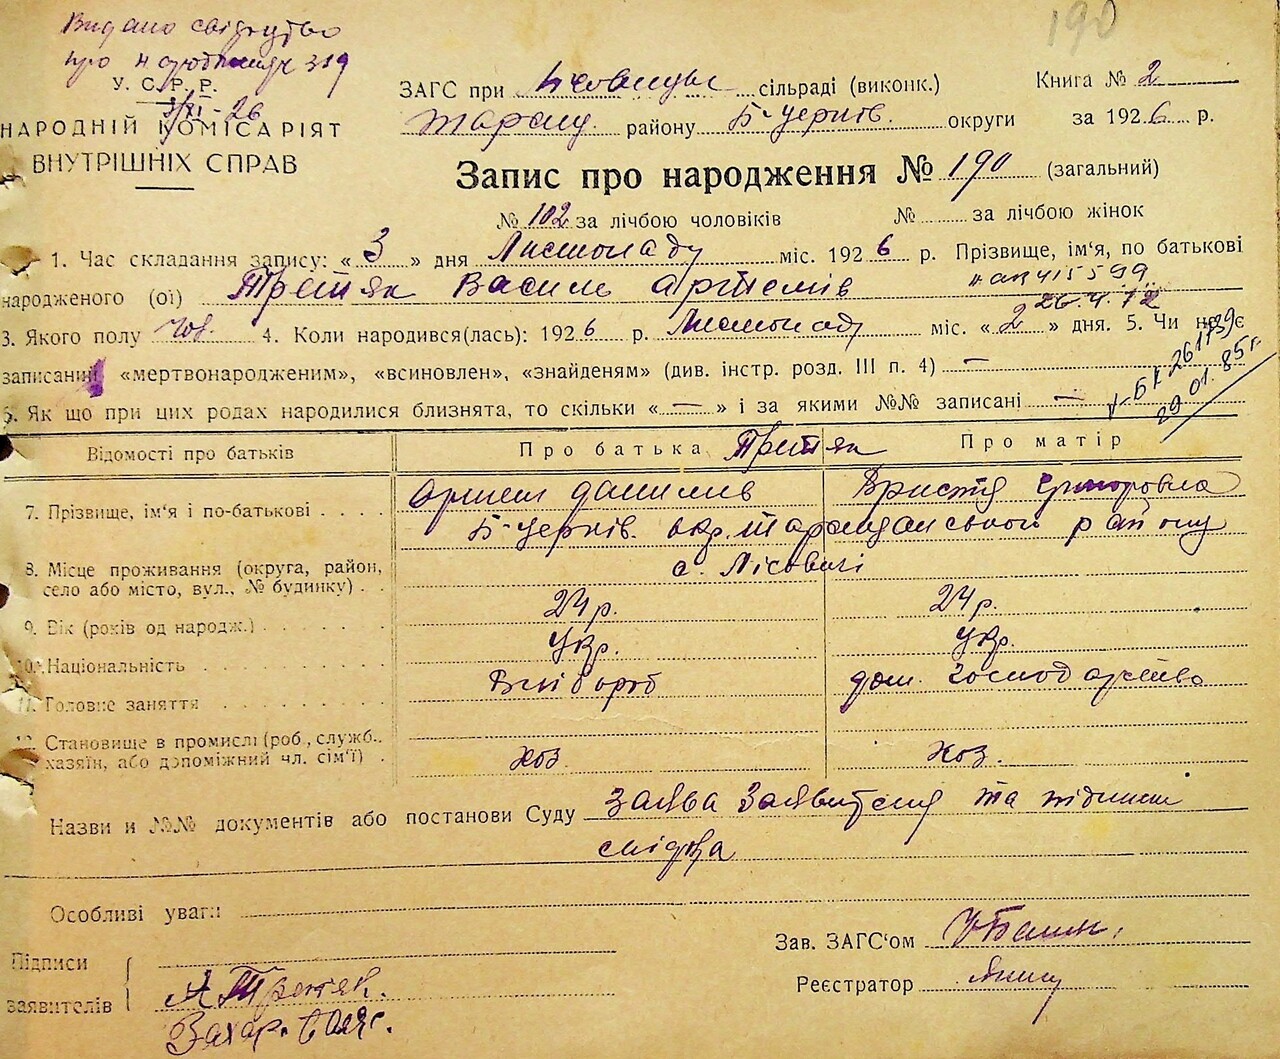 190
Видано свідоцтво
про народження 319
У. С. Р. Р.
3/XI-26
НАРОДНІЙ КОМІСАРІЯТ
ВНУТРІШНІХ СПРАВ
ЗАГС при Лісовицьк сільраді (виконк.) Книга № 2
Таращ. району Б-Церків. округи за 1926 р.
Запис про народження № 190 (загальний)
№ 102 за лічбою чоловіків № за лічбою жінок
1. Час складання запису: «3» дня Листопаду міс. 1926 р. Прізвище, ім'я, по батькові
народженого (ої) Третяк Василь Артемів
26.4.72
3. Якого полу чол. 4. Коли народився(лась): 1926 р. Листопаду міс. «2» дня. 5. Чи не є
записаний «мертвонародженим», «всиновлен», «знайденям» (див. інстр. розд. III п. 4) —
29.01.85 г.
6. Як що при цих родах народилися близнята, то скільки « — » і за якими №№ записані —
Відомості про батьків Про батька Третяк Про матір
7. Прізвище, ім'я і по-батькові Артем Данилів Христя Григоровна
Б-Церків. окр. Таращанського району
8. Місце проживання (округа, район, село або місто, вул., № будинку) с. Лісовичі
9. Вік (років од народж.) 24 р. 24 р.
10. Національність Укр. Укр.
11. Головне заняття Хлібороб дом. господарство
12. Становище в промислі (роб., служб.,
хазяїн, або допоміжний чл. сім'ї) хоз. хоз.
Назви и №№ документів або постанови Суду Заява Заявителя та підписи
свідка
Особливі уваги
Зав. ЗАГС'ом
Підписи
заявителів А Третяк.
Реєстратор
Захар.